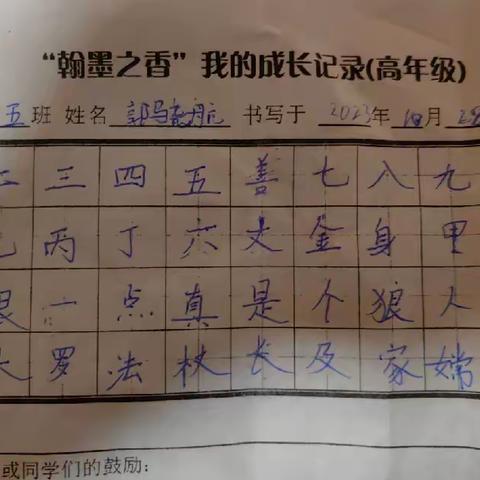 “翰墨之香”我的成长记录(高年级)
五班 姓名 郭骐航 书写于 2023年 10月 28
二 三 四 五 善 七 八 九
丙 丁 六 丈 金 身 甲
一 点 真 是 个 狼 人
大 罗 法 杖 长 及 家 嫦
或同学们的鼓励: